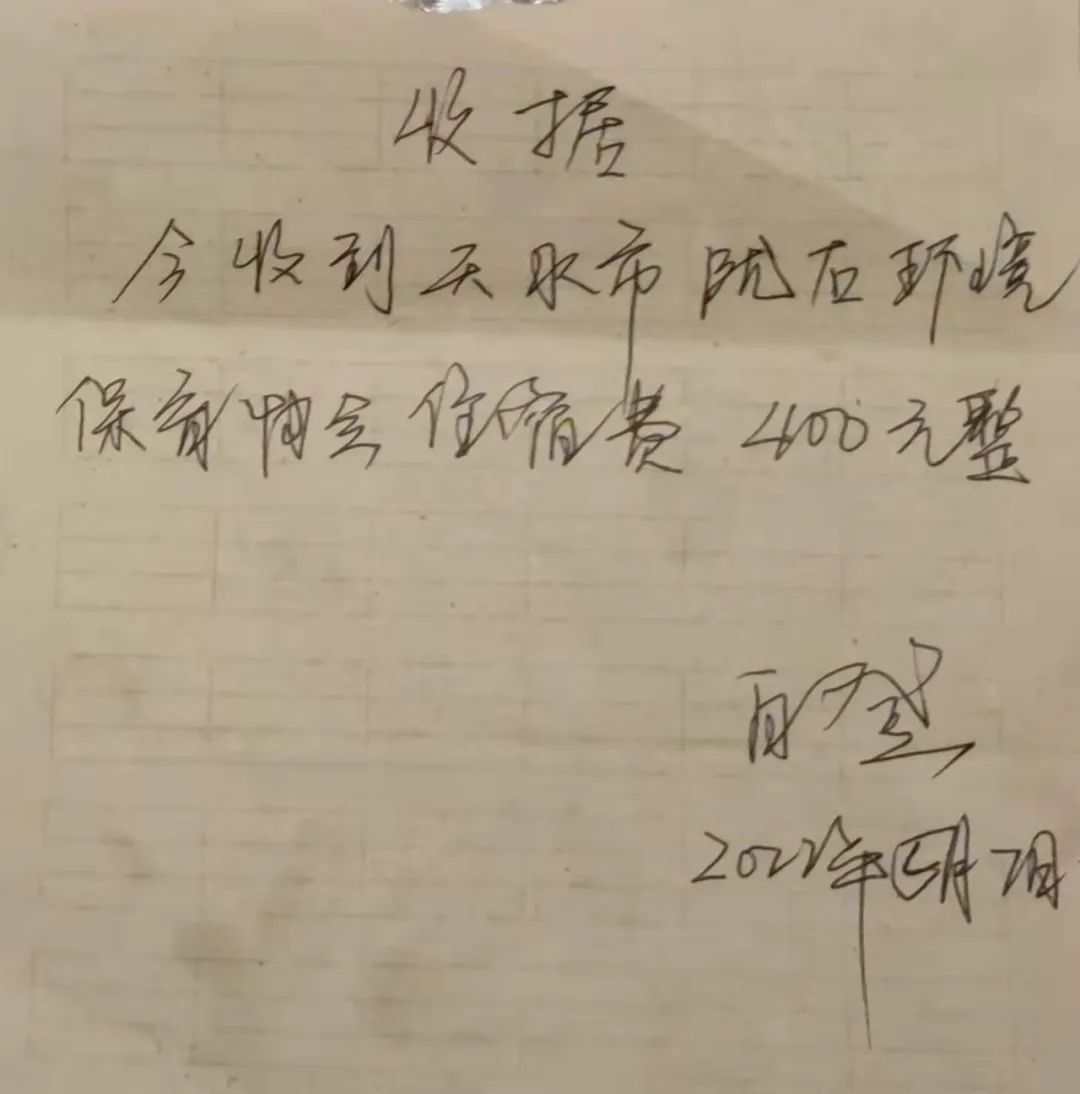 收据
今收到天水市陇右环境
保育协会住宿费 400元整
2022年5月2日